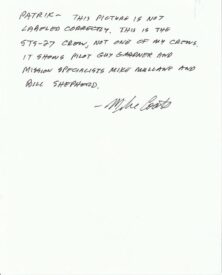 PATRIK - THIS PICTURE IS NOT
LABELED CORRECTLY. THIS IS THE
STS-27 CREW, NOT ONE OF MY CREWS.
IT SHOWS PILOT GUY GARDNER AND
MISSION SPECIALISTS MIKE MULLANE AND
BILL SHEPHERD.
- Mike Coats